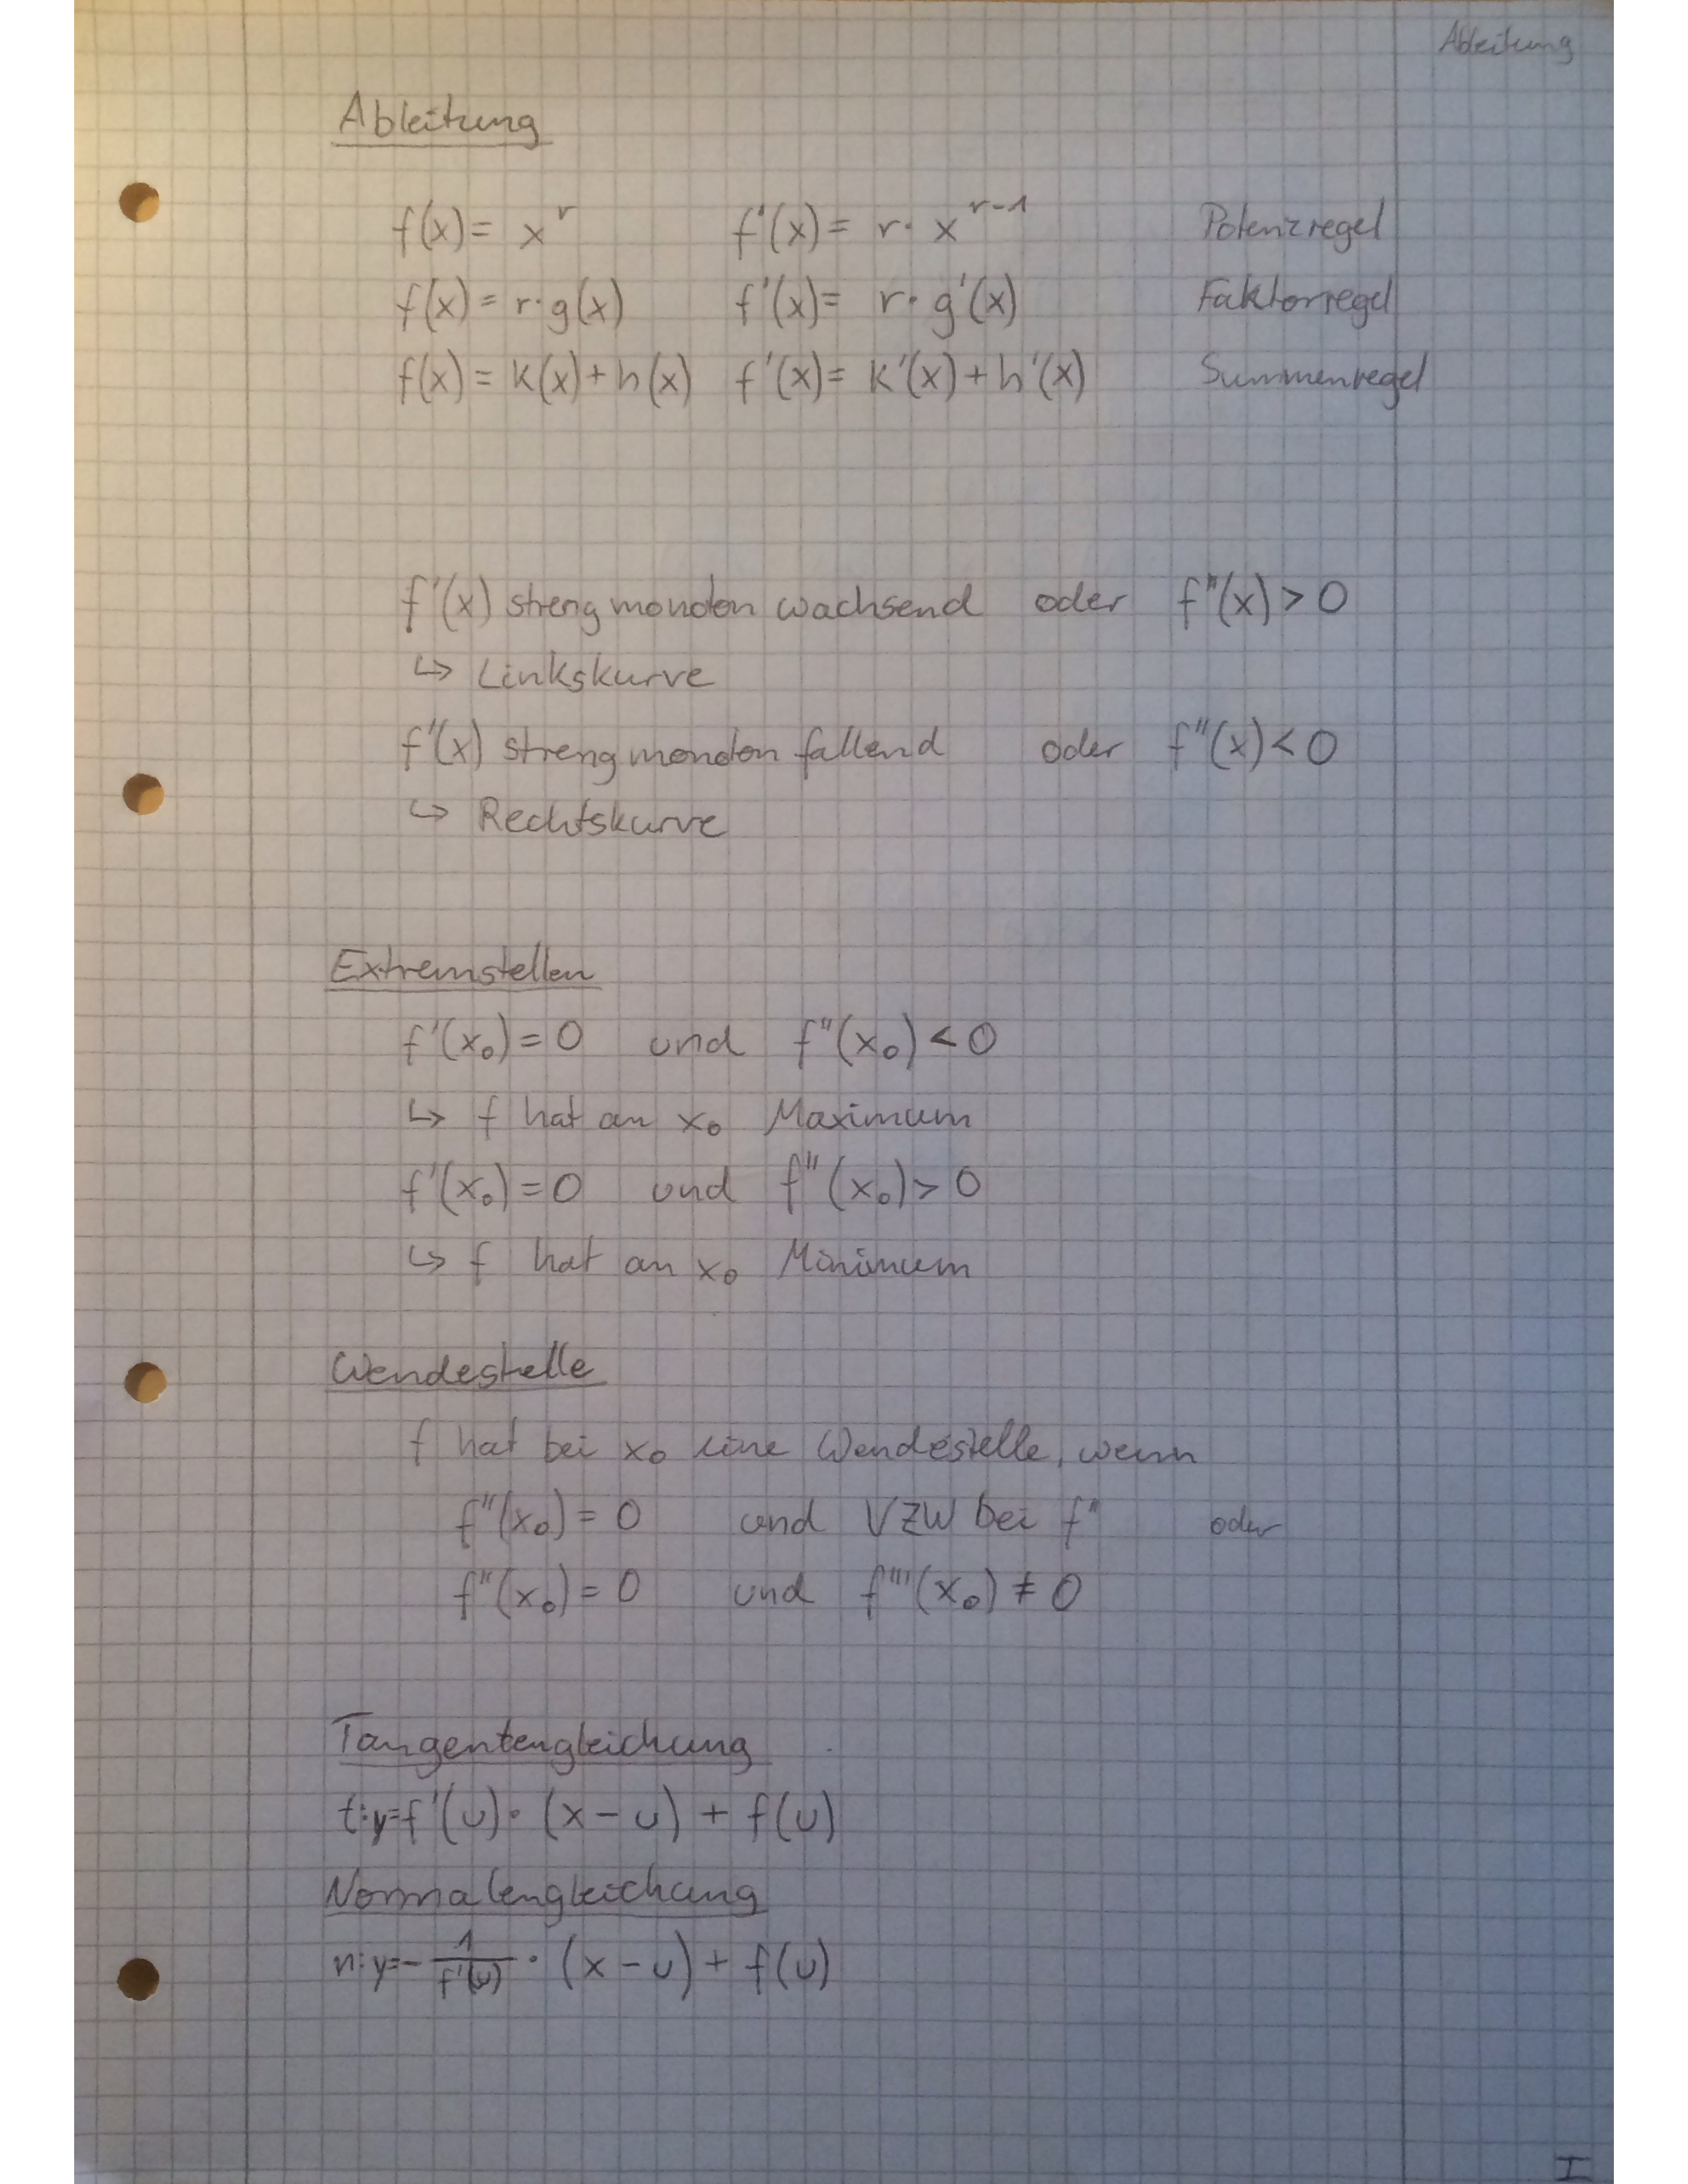 Ableitung
Ableitung
f(x) = x^r f'(x) = r · x^(r-1) Potenzregel
f(x) = r · g(x) f'(x) = r · g'(x) Faktorregel
f(x) = k(x) + h(x) f'(x) = k'(x) + h'(x) Summenregel
f'(x) streng monoton wachsend oder f''(x) > 0
↪ Linkskurve
f'(x) streng monoton fallend oder f''(x) < 0
↪ Rechtskurve
Extremstellen
f'(x₀) = 0 und f''(x₀) < 0
↪ f hat an x₀ Maximum
f'(x₀) = 0 und f''(x₀) > 0
↪ f hat an x₀ Minimum
Wendestelle
f hat bei x₀ eine Wendestelle, wenn
f''(x₀) = 0 und VZW bei f'' oder
f''(x₀) = 0 und f'''(x₀) ≠ 0
Tangentengleichung
t: y = f'(u) · (x - u) + f(u)
Normalengleichung
n: y = - 1/f'(u) · (x - u) + f(u)
I